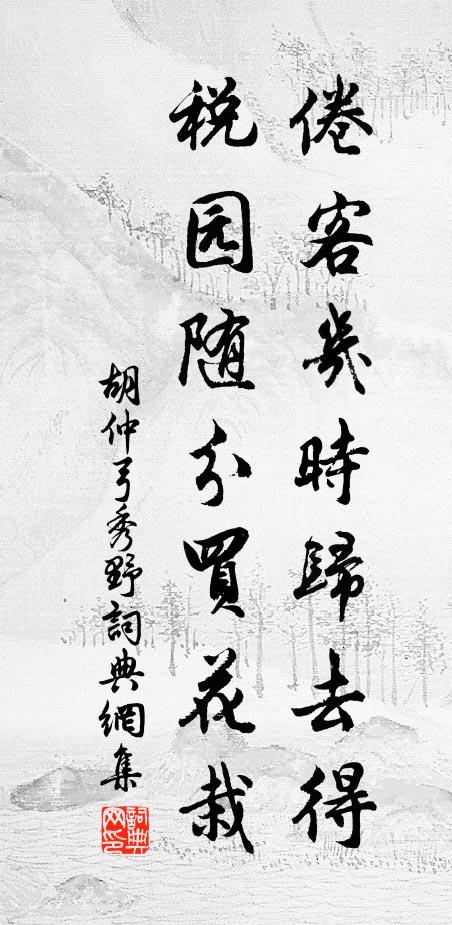 倦客幾時歸去得
税园随分買花栽
胡仲弓秀野詞典網集
詞典網印